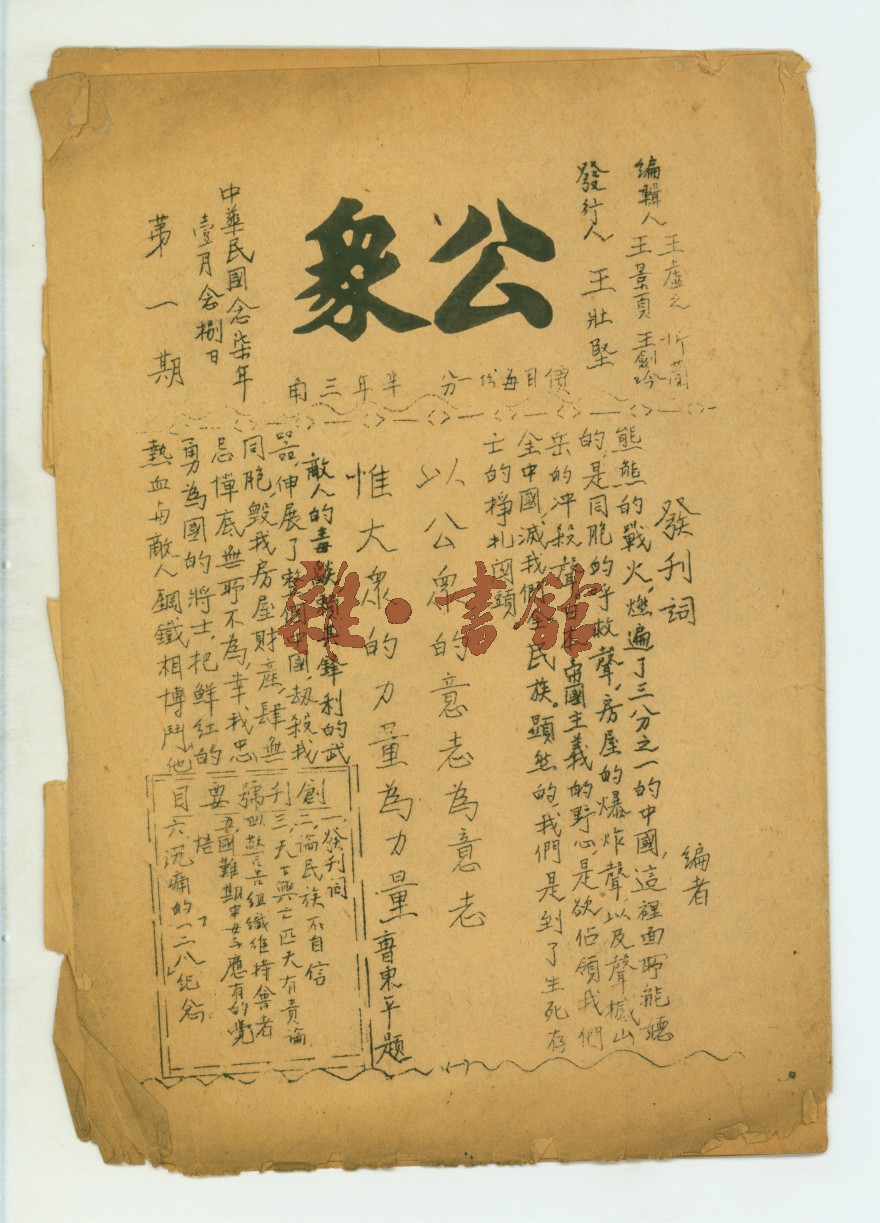 公衆
編輯人
王景頁
王劍珍
發行人 王壯堅
中華民國念柒年
壹月念捌日
第一期
價目每份一分 半年三角
發刊詞
編者
熊熊的戰火，燃遍了三分之一的中國，這裡面所能聽
的，是同胞的呼救聲，房屋的爆炸聲，以及聲撼山
岳的冲殺聲，日本帝國主義的野心，是欲佔領我們
全中國，滅我們全民族。顯然的，我們是到了生死存
亡的掙扎関頭
以公衆的意志為意志
惟大衆的力量為力量
曹東平題
敵人的毒燄，鋒利的武
器，伸展了整個中國，劫殺我
同胞，毀我房屋財產，肆無
忌憚底無所不為，幸我忠
勇為國的將士，把鮮紅的
熱血與敵人鋼鐵相博鬥，他
創刊號要目
一、發刊詞
二、論民族不自信
三、天下興亡匹夫有責論
四、警告組織維持會者
五、國難期中女子應有的覺
悟
六、沉痛的「一二八」紀念
(一)
雜·書館